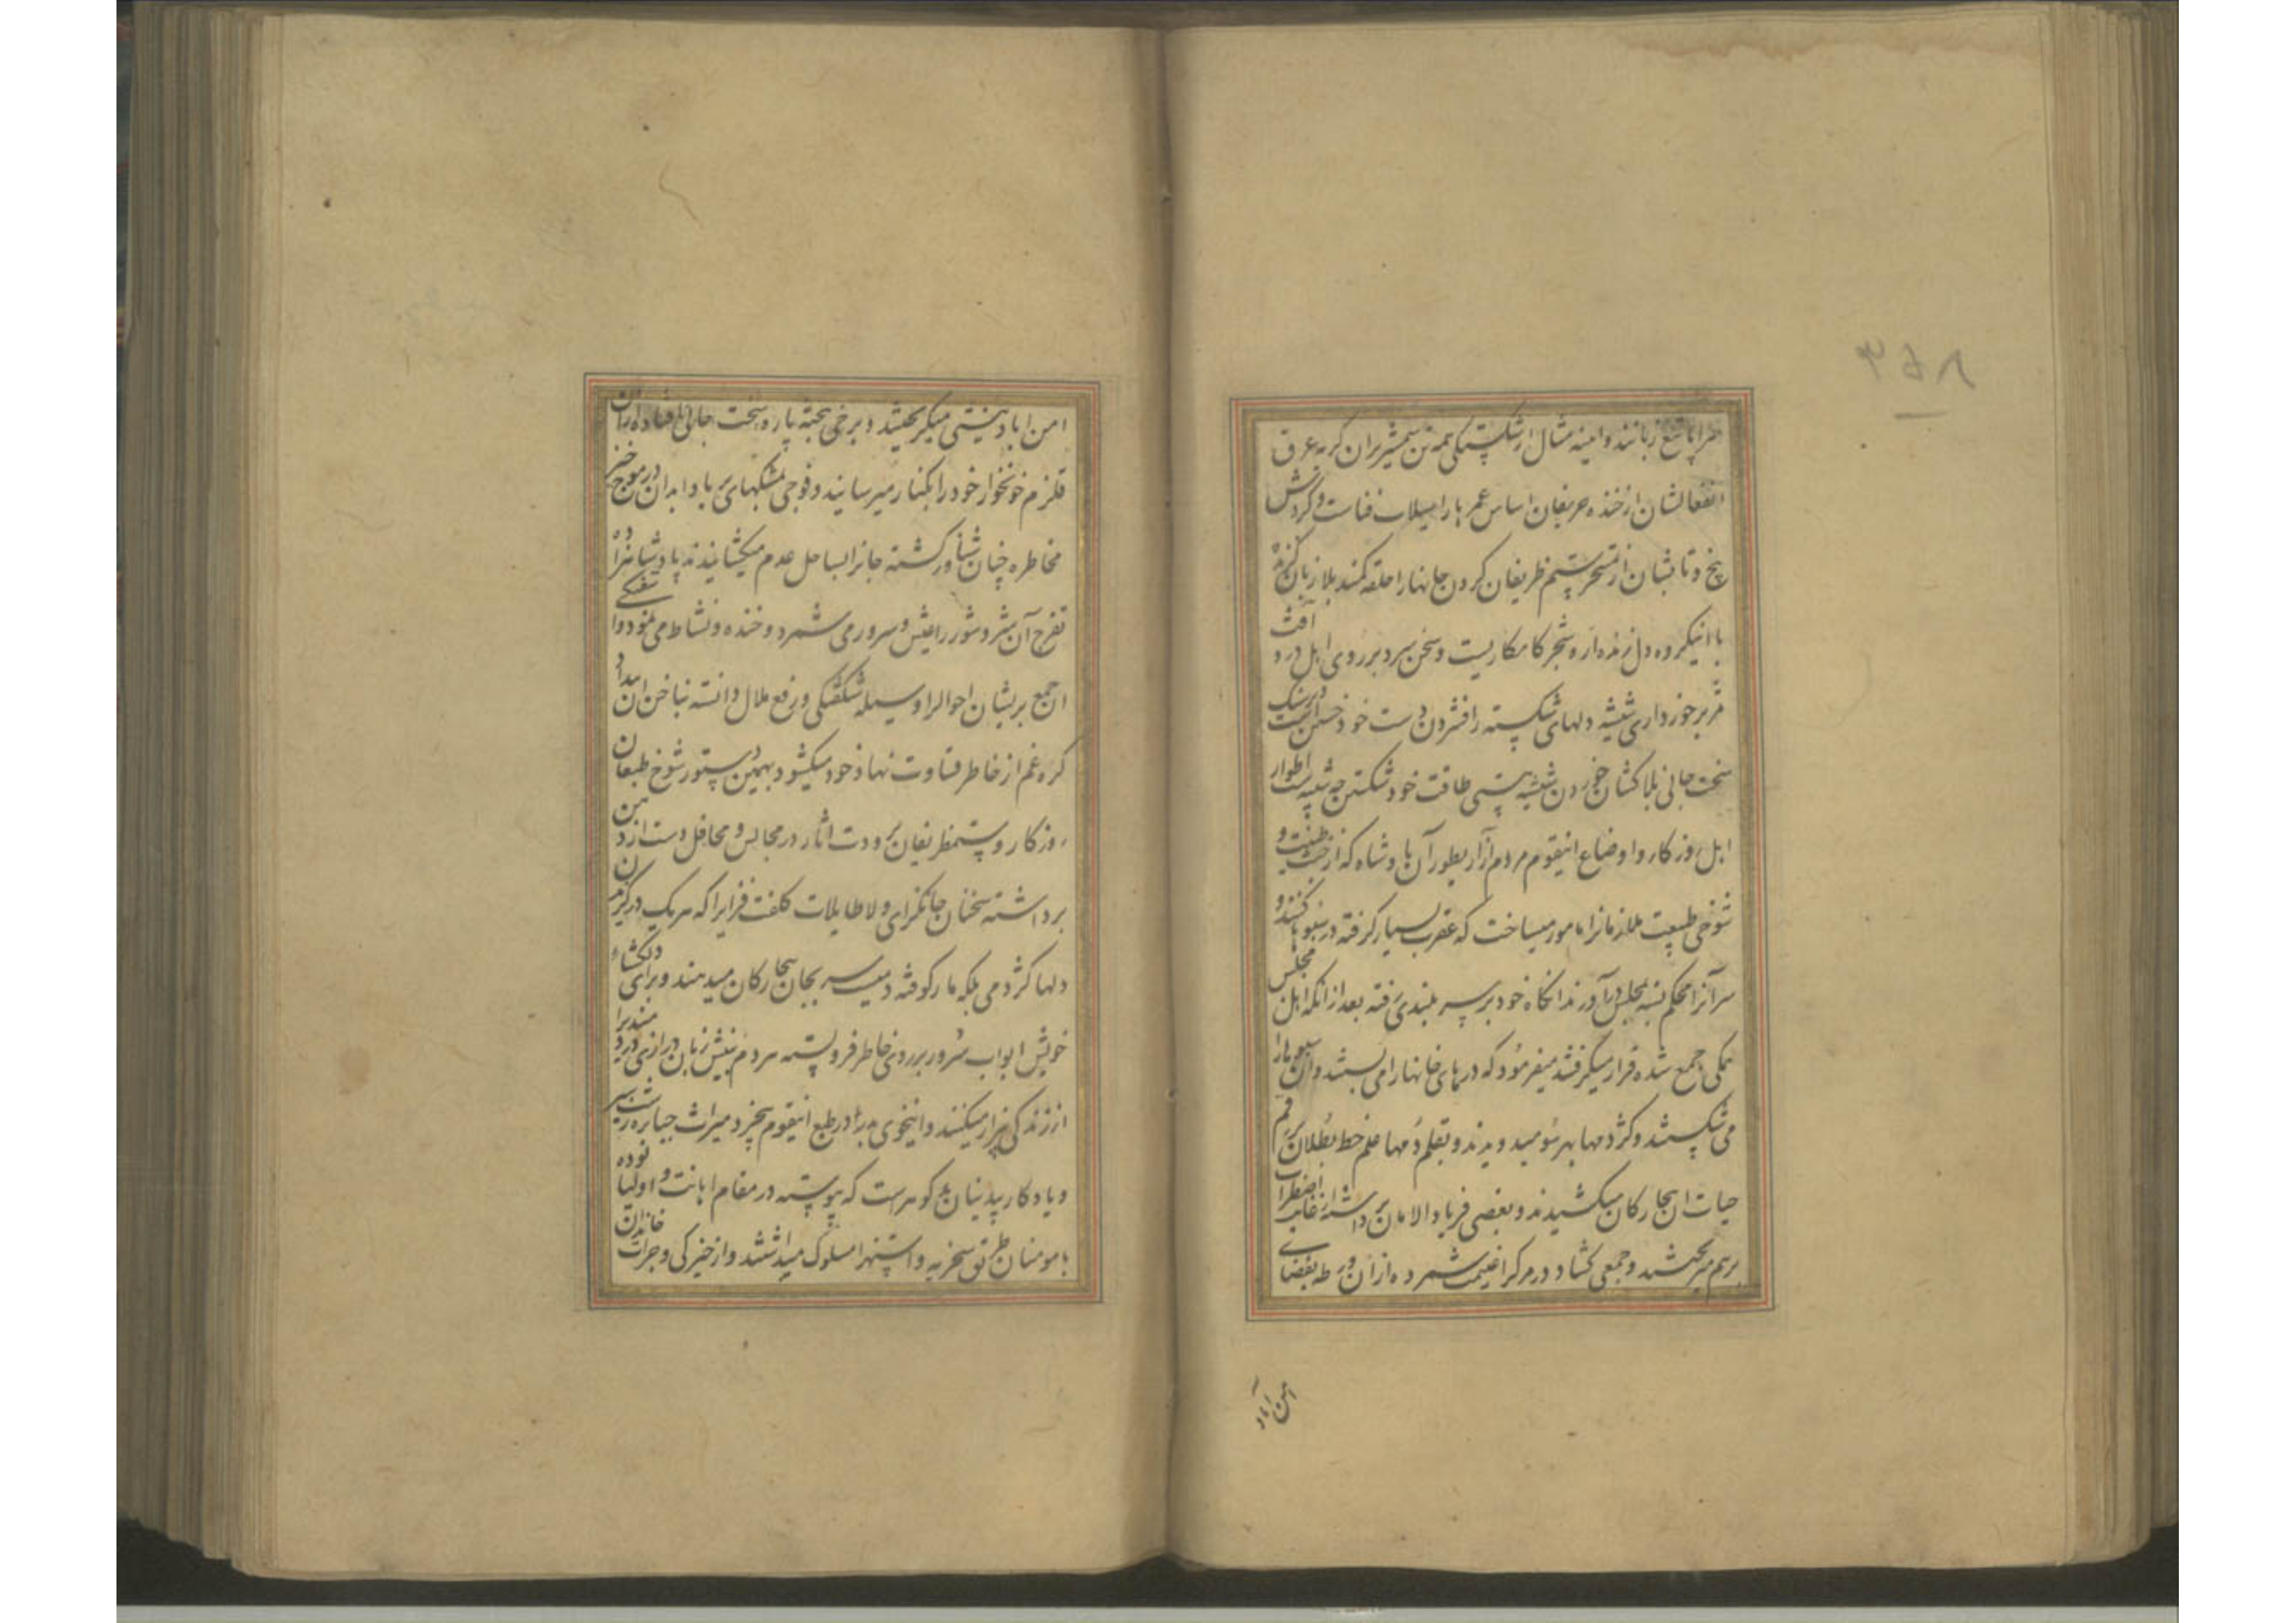 سراپا تیغ زبانند و اینه مثال از شکستگی همه تن شمشیر بران گریه عرق
انفعالشان از خنده حریفان اساس عمر ها را سیلاب فناست و گردش
پیچ و تابشان از تمسخر ستم ظریفان گردن جانها را حلقه کمند بلا زبان
با اینگروه دل زنده اره شجر کامکاریست و سخن سرد بر روی اهل درد آفت
ثمر برخورداری شیشه دلهای شکسته را فشردن دست خود خستن است
سخت جانی بلا کشان خوردن شیشه هستی طاقت خود شکستن چه شبیه است اطوار
اهل روزگار و اوضاع اینقوم مردم آزار بطور آن پادشاه که از خبث طینت و
شوخی طبیعت ملازمانرا مامور میساخت که عقرب بسیار گرفته در سبوها کنند و
سر آنرا محکم بسته بمجلس درآورند انگاه خود بر سر بلندی رفته بعد از آنکه اهل مجلس
همگی جمع شده قرار میگرفتند میفرمود که درهای خانها را می بستند و آن سبوها را
می شکستند و کژدمها بهر سو میدویدند و بقلم دمها علم خط بطلان بر رقم
حیات ان بیچارگان میکشیدند و بعضی فریاد الامان برداشته از غایت اضطراب
برهم میریختند و جمعی گشاد در مرگ را غنیمت شمرده از ان ورطه بفضای
امن آباد
امن اباد نیستی میگریختند و برخی بتخته پاره سخت جانی افتاده از ان
قلزم خونخوار خود را بکنار میرسانیدند و فوجی بمشکهای پر باد ابدان در موج خیز
مخاطره چنان شناور گشته جانرا بساحل عدم میکشانیدند پادشاه
تفرج آن شر و شور را عیش و سرور می شمرد و خنده و نشاط می نمود و آشفتگی
ان جمع پریشان احوال را وسیله شکفتگی و رفع ملال دانسته بناخن ان بیداد
گره غم از خاطر قساوت نهاد خود میگشود بهمین دستور شوخ طبعان
روزگار و ستمظریفان برودت اثار در مجالس و محافل دست از دهن
برداشته سخنان جانگزای و لاطایلات کلفت فزایرا که هریک در گزیدن
دلها کژدمی بلکه مار کوفته دمیست سر بجان بیچارگان میدهند و برای دلگشائی
خویش ابواب سرور بر روی خاطر فروبسته مردم بنیش زبان درازی دردمندیرا
از زندگی بیزار میکنند و اینخوی بد را در طبع اینقوم بیخرد میراث جباره
و یادگار بیدینان بد گوهرست که پیوسته در مقام اهانت و اولیا بوده
با مومنان طریق سخریه و استهزا مسلوک میداشتند و از خیرگی و جرات خاندان